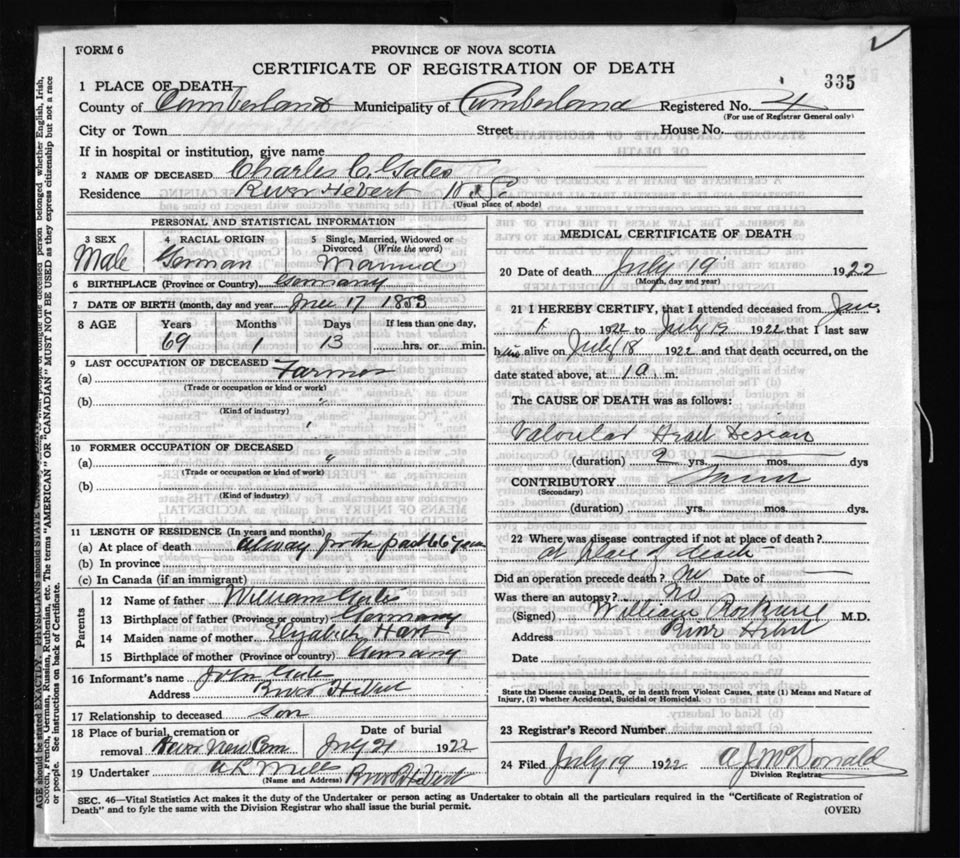 FORM 6
PROVINCE OF NOVA SCOTIA
CERTIFICATE OF REGISTRATION OF DEATH
335
1 PLACE OF DEATH
County of Cumberland Municipality of Cumberland Registered No. 4
(For use of Registrar General only)
City or Town Street House No.
If in hospital or institution, give name
2 NAME OF DECEASED Charles C. Gates
Residence River Hebert N.S.
(Usual place of abode)
PERSONAL AND STATISTICAL INFORMATION
3 SEX 4 RACIAL ORIGIN 5 Single, Married, Widowed or Divorced (Write the word)
Male German Married
6 BIRTHPLACE (Province or Country) Germany
7 DATE OF BIRTH (month, day and year) June 17 1853
8 AGE Years Months Days If less than one day,
69 1 13 hrs. or min.
9 LAST OCCUPATION OF DECEASED Farmer
(a)
(Trade or occupation or kind or work)
(b) "
(Kind of industry)
"
10 FORMER OCCUPATION OF DECEASED
(a) "
(Trade or occupation or kind of work)
(b)
(Kind of industry)
11 LENGTH OF RESIDENCE (In years and months)
(a) At place of death for the past 66 years
(b) In province
(c) In Canada (if an immigrant)
Parents
12 Name of father William Gates
13 Birthplace of father (Province or country) Germany
14 Maiden name of mother Elizabeth Hart
15 Birthplace of mother (Province or country) Germany
16 Informant's name John Gates
Address River Hebert
17 Relationship to deceased son
18 Place of burial, cremation or removal River New Cem
Date of burial July 21 1922
19 Undertaker Mills River Hebert
(Name and Address)
MEDICAL CERTIFICATE OF DEATH
20 Date of death July 19 1922
(Month, day and year)
21 I HEREBY CERTIFY, that I attended deceased from Jan.
1 1922 to July 19 1922 that I last saw
him alive on July 18 1922 and that death occurred, on the
date stated above, at 1 a m.
The CAUSE OF DEATH was as follows:
Valvular Heart Disease
(duration) 2 yrs. mos. dys
CONTRIBUTORY
(Secondary)
(duration) yrs. mos. dys.
22 Where was disease contracted if not at place of death?
at place of death
Did an operation precede death? no Date of
Was there an autopsy? no
(Signed) William Rockwell M.D.
Address River Hebert
Date
State the Disease causing Death, or in death from Violent Causes, state (1) Means and Nature of
Injury, (2) whether Accidental, Suicidal or Homicidal.
23 Registrar's Record Number
24 Filed July 19 1922 A J McDonald
Division Registrar
SEC. 46—Vital Statistics Act makes it the duty of the Undertaker or person acting as Undertaker to obtain all the particulars required in the "Certificate of Registration of
Death" and to fyle the same with the Division Registrar who shall issue the burial permit.
(OVER)